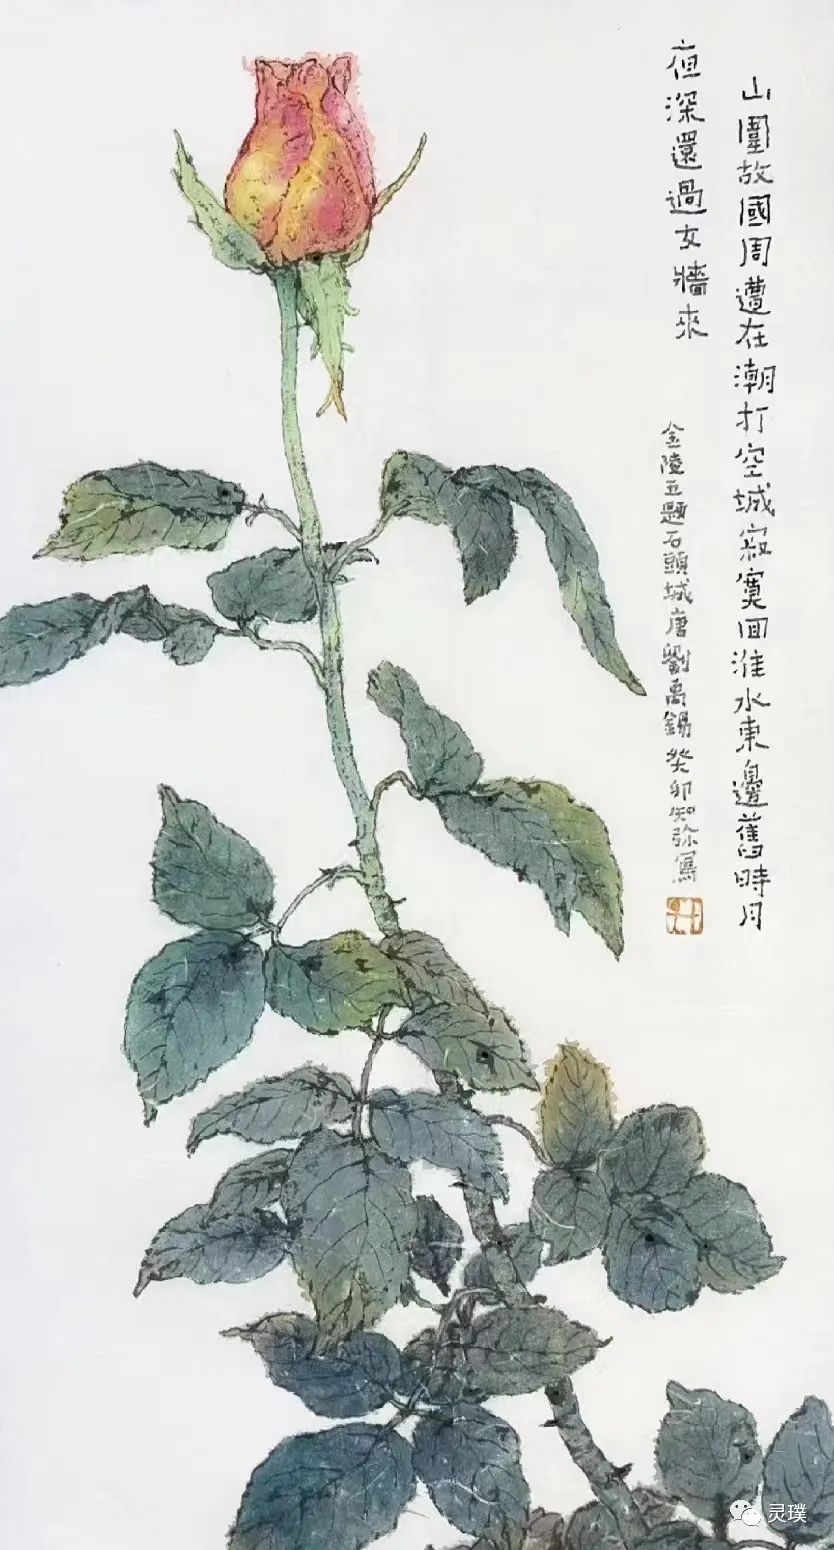 山圍故國周遭在潮打空城寂寞回淮水東邊舊時月
夜深還過女牆來
金陵五題石頭城唐劉禹錫癸卯知弥寫
灵璞